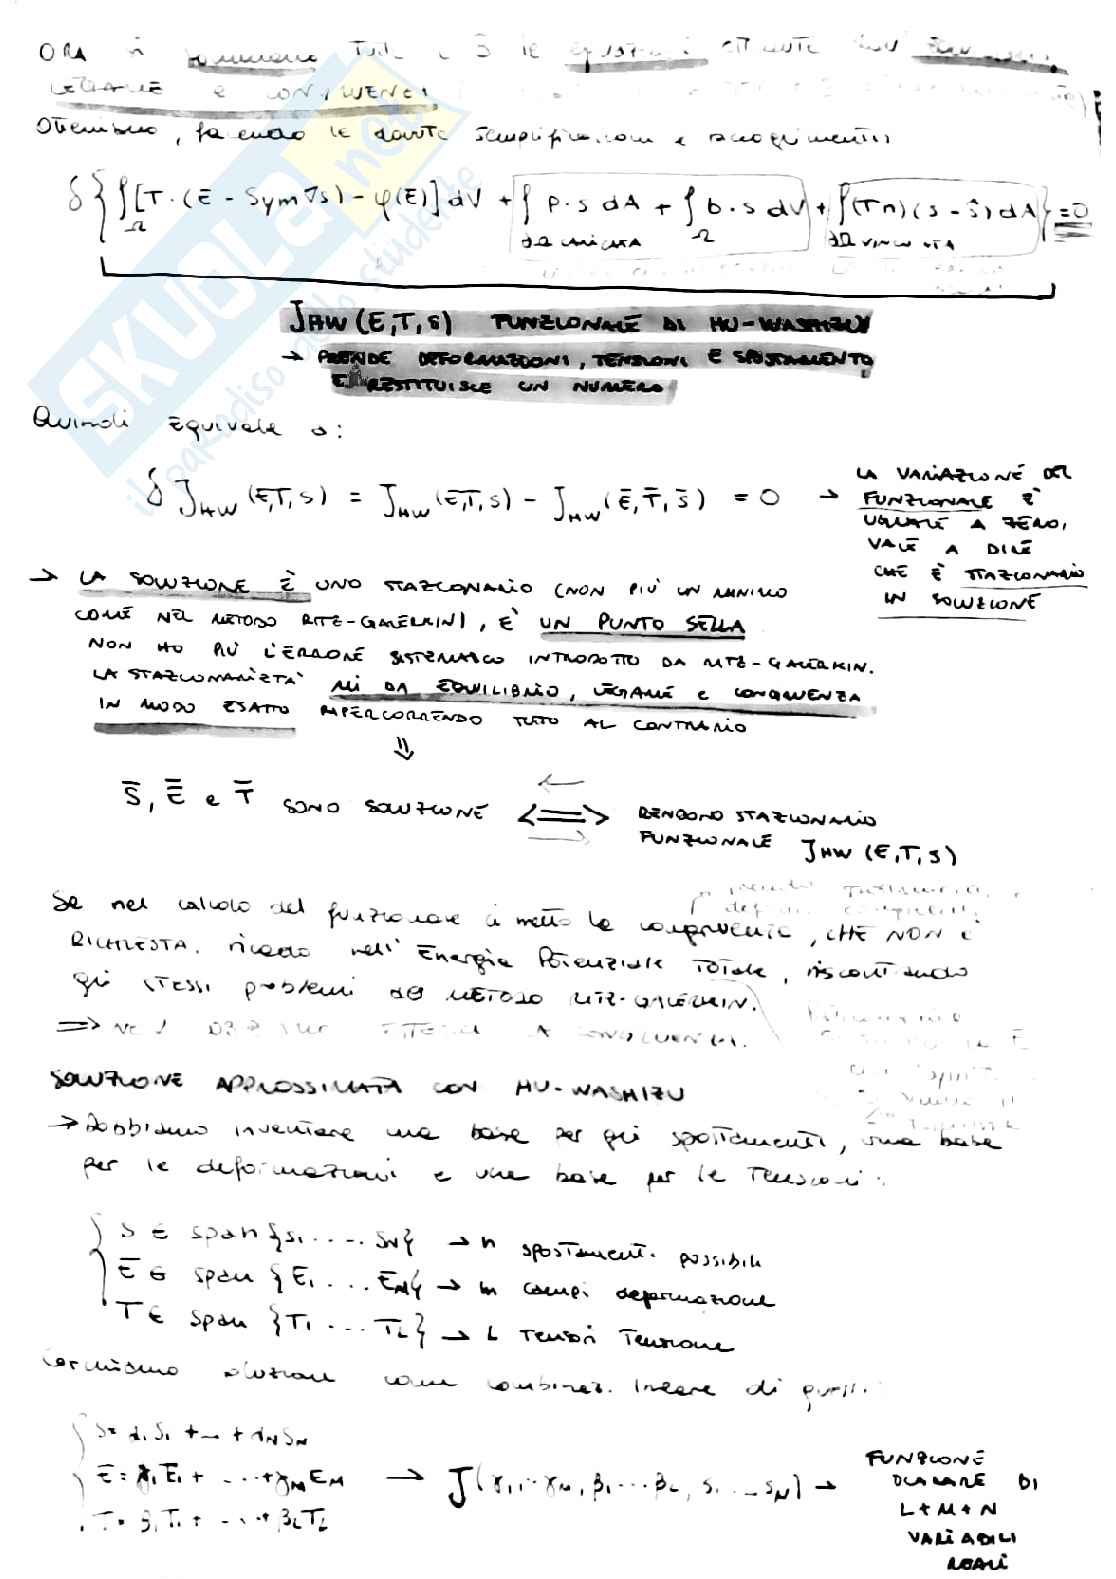 ORA si sommano tutte e 3 le equazioni ottenute
LEGAME e CONGRUENZA
Otteniamo, facendo le dovute semplificazioni e raccoglimenti
δ{∫Ω[T·(E - Sym∇s) - φ(E)]dV + ∫∂Ω CARICATA p·s dA + ∫Ω b·s dV + ∫∂Ω VINCOLATA (Tn)(s - ŝ)dA} = 0
JHW(E,T,s) FUNZIONALE DI HU-WASHIZU
→ PRENDE DEFORMAZIONI, TENSIONI E SPOSTAMENTO
E RESTITUISCE UN NUMERO
Quindi equivale a:
δJHW(E,T,s) = JHW(E,T,s) - JHW(Ē,T̄,s̄) = 0 → LA VARIAZIONE DEL
FUNZIONALE È
UGUALE A ZERO,
VALE A DIRE
CHE È STAZIONARIO
IN SOLUZIONE
→ LA SOLUZIONE È UNO STAZIONARIO (NON PIÙ UN MINIMO
COME NEL METODO RITZ-GALERKIN), È UN PUNTO SELLA
NON HO PIÙ L'ERRORE SISTEMATICO INTRODOTTO DA RITZ-GALERKIN.
LA STAZIONARIETÀ MI DA EQUILIBRIO, LEGAME E CONGRUENZA
IN MODO ESATTO RIPERCORRENDO TUTTO AL CONTRARIO
⇓
S̄, Ē e T̄ SONO SOLUZIONE ⟺ RENDONO STAZIONARIO
FUNZIONALE JHW(E,T,s)
Se nel calcolo del funzionale ci metto la congruenza, CHE NON È
RICHIESTA, ricado nell'Energia Potenziale Totale, riscontrando
gli stessi problemi del METODO RITZ-GALERKIN.
SOLUZIONE APPROSSIMATA CON HU-WASHIZU
→ Dobbiamo inventare una base per gli spostamenti, una base
per le deformazioni e una base per le tensioni:
S ∈ span {s1.....sN} → n spostamenti possibili
E ∈ span {E1....EM} → m campi deformazione
T ∈ span {T1....TL} → L tensori tensione
soluzione come combinaz. lineare di questi:
S = α1S1 +...+ αNSN
E = γ1E1 + ....+ γMEM → J(γ1...γM, β1...βL, s1...sN) → FUNZIONE
SCALARE DI
L+M+N
VARIABILI
REALI
T = β1T1 + ...+ βLTL